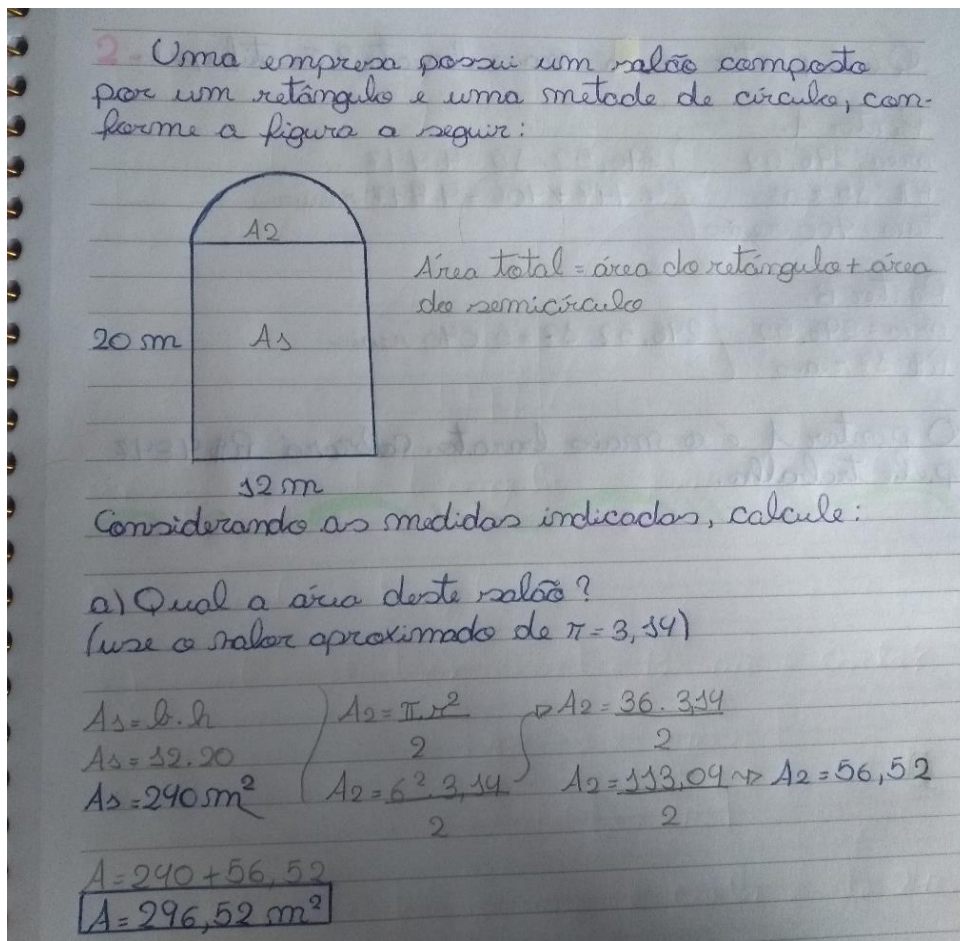 2- Uma empresa possui um salão composto
por um retângulo e uma metade de círculo, con-
forme a figura a seguir:
A2
Área total = área do retângulo + área
do semicírculo
20 m
A1
12 m
Considerando as medidas indicadas, calcule:
a) Qual a área deste salão?
(use o valor aproximado de π = 3,14)
A1 = b.h
A1 = 12.20
A1 = 240 m²
A2 = π.r²
2
A2 = 6².3,14
2
A2 = 36.3,14
2
A2 = 113,04 ~> A2 = 56,52
2
A = 240 + 56,52
A = 296,52 m²